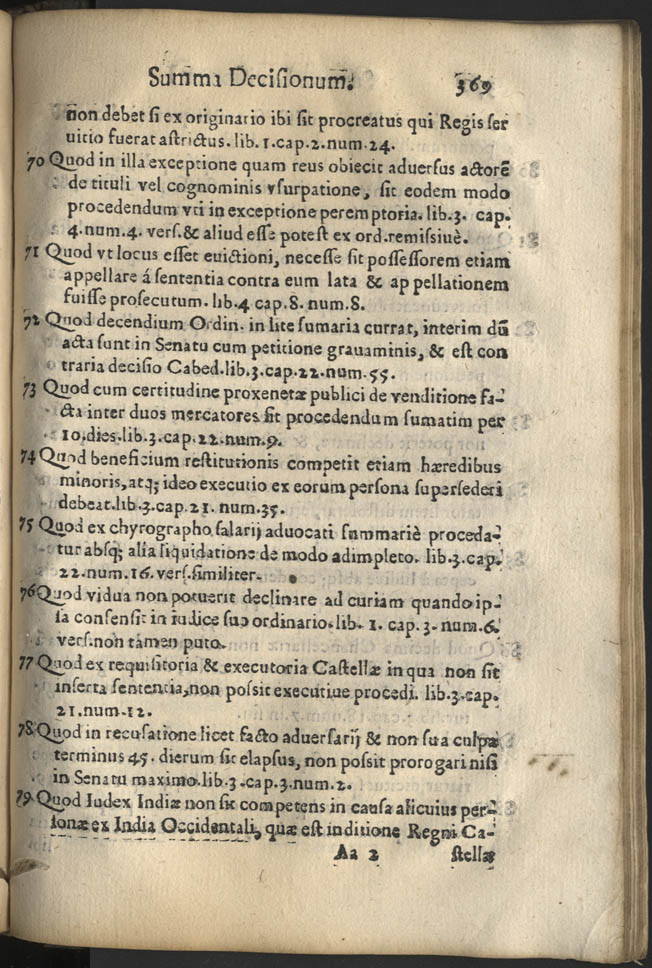 Summa Decisionum. 369
non debet si ex originario ibi sit procreatus qui Regis ser
uitio fuerat astrictus. lib. 1. cap. 2. num. 24.
70 Quod in illa exceptione quam reus obiecit aduersus actorē
de tituli vel cognominis vsurpatione, sit eodem modo
procedendum vti in exceptione peremptoria. lib. 3. cap.
4. num. 4. vers. & aliud esse potest ex ord. remissiuè.
71 Quod vt locus esset euictioni, necesse sit possessorem etiam
appellare á sententia contra eum lata & appellationem
fuisse prosecutum. lib. 4 cap. 8. num. 8.
72 Quod decendium Ordin. in lite sumaria currat, interim dū
acta sunt in Senatu cum petitione grauaminis, & est con
traria decisio Cabed. lib. 3. cap. 22. num. 55.
73 Quod cum certitudine proxenetæ publici de venditione fa-
cta inter duos mercatores sit procedendum sumatim per
10. dies. lib. 3. cap. 22. num. 9.
74 Quod beneficium restitutionis competit etiam hæredibus
minoris, atq; ideo executio ex eorum persona supersederi
debeat. lib. 3. cap. 21. num. 35.
75 Quod ex chyrographo salarij aduocati summariè proceda-
tur absq; alia liquidatione de modo adimpleto. lib. 3. cap.
22. num. 16. vers. similiter.
76 Quod vidua non potuerit declinare ad curiam quando ip-
sa consensit in iudice suo ordinario. lib. 1. cap. 3. num. 6.
vers. non tamen puto.
77 Quod ex requisitoria & executoria Castellæ in qua non sit
inserta sententia, non possit executiue procedi. lib. 3. cap.
21. num. 12.
78 Quod in recusatione licet facto aduersarij & non sua culpa
terminus 45. dierum sit elapsus, non possit prorogari nisi
in Senatu maximo. lib. 3. cap. 3. num. 2.
79 Quod Iudex Indiæ non sit competens in causa alicuius per-
sonæ ex India Occidentali, quæ est in ditione Regni Ca-
Aa 2 stellæ